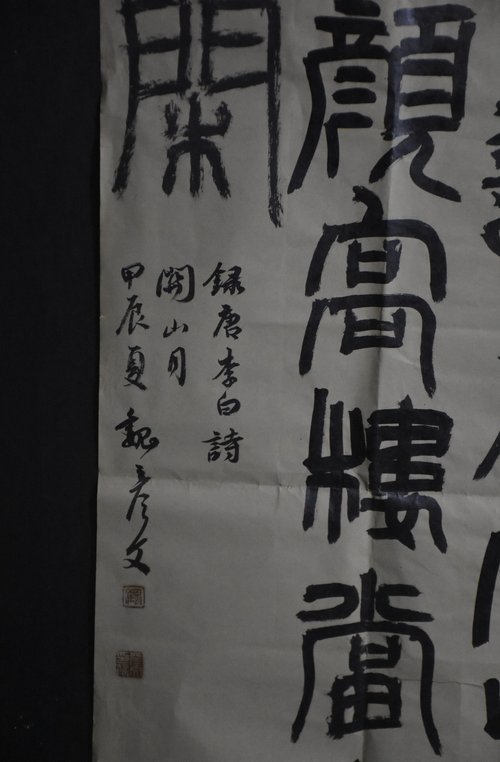 顏高樓當
閑
録唐李白詩
關山月
甲辰夏 魏彦文